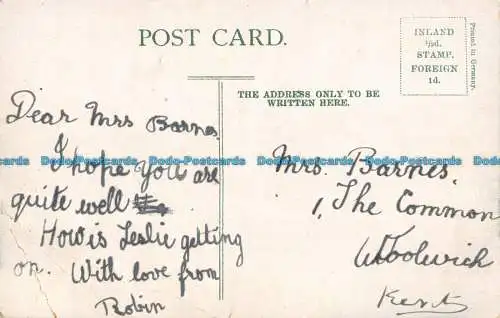 POST CARD.
INLAND
½d.
STAMP,
FOREIGN
1d.
Printed in Germany.
THE ADDRESS ONLY TO BE
WRITTEN HERE.
Dear Mrs Barnes
I hope you are
quite well
How is Leslie getting
on. With love from
Robin
Mrs. Barnes.
1, The Common
Woolwich
Kent
Dado-Postcards Dado-Postcards Dado-Postcards Dado-Postcards